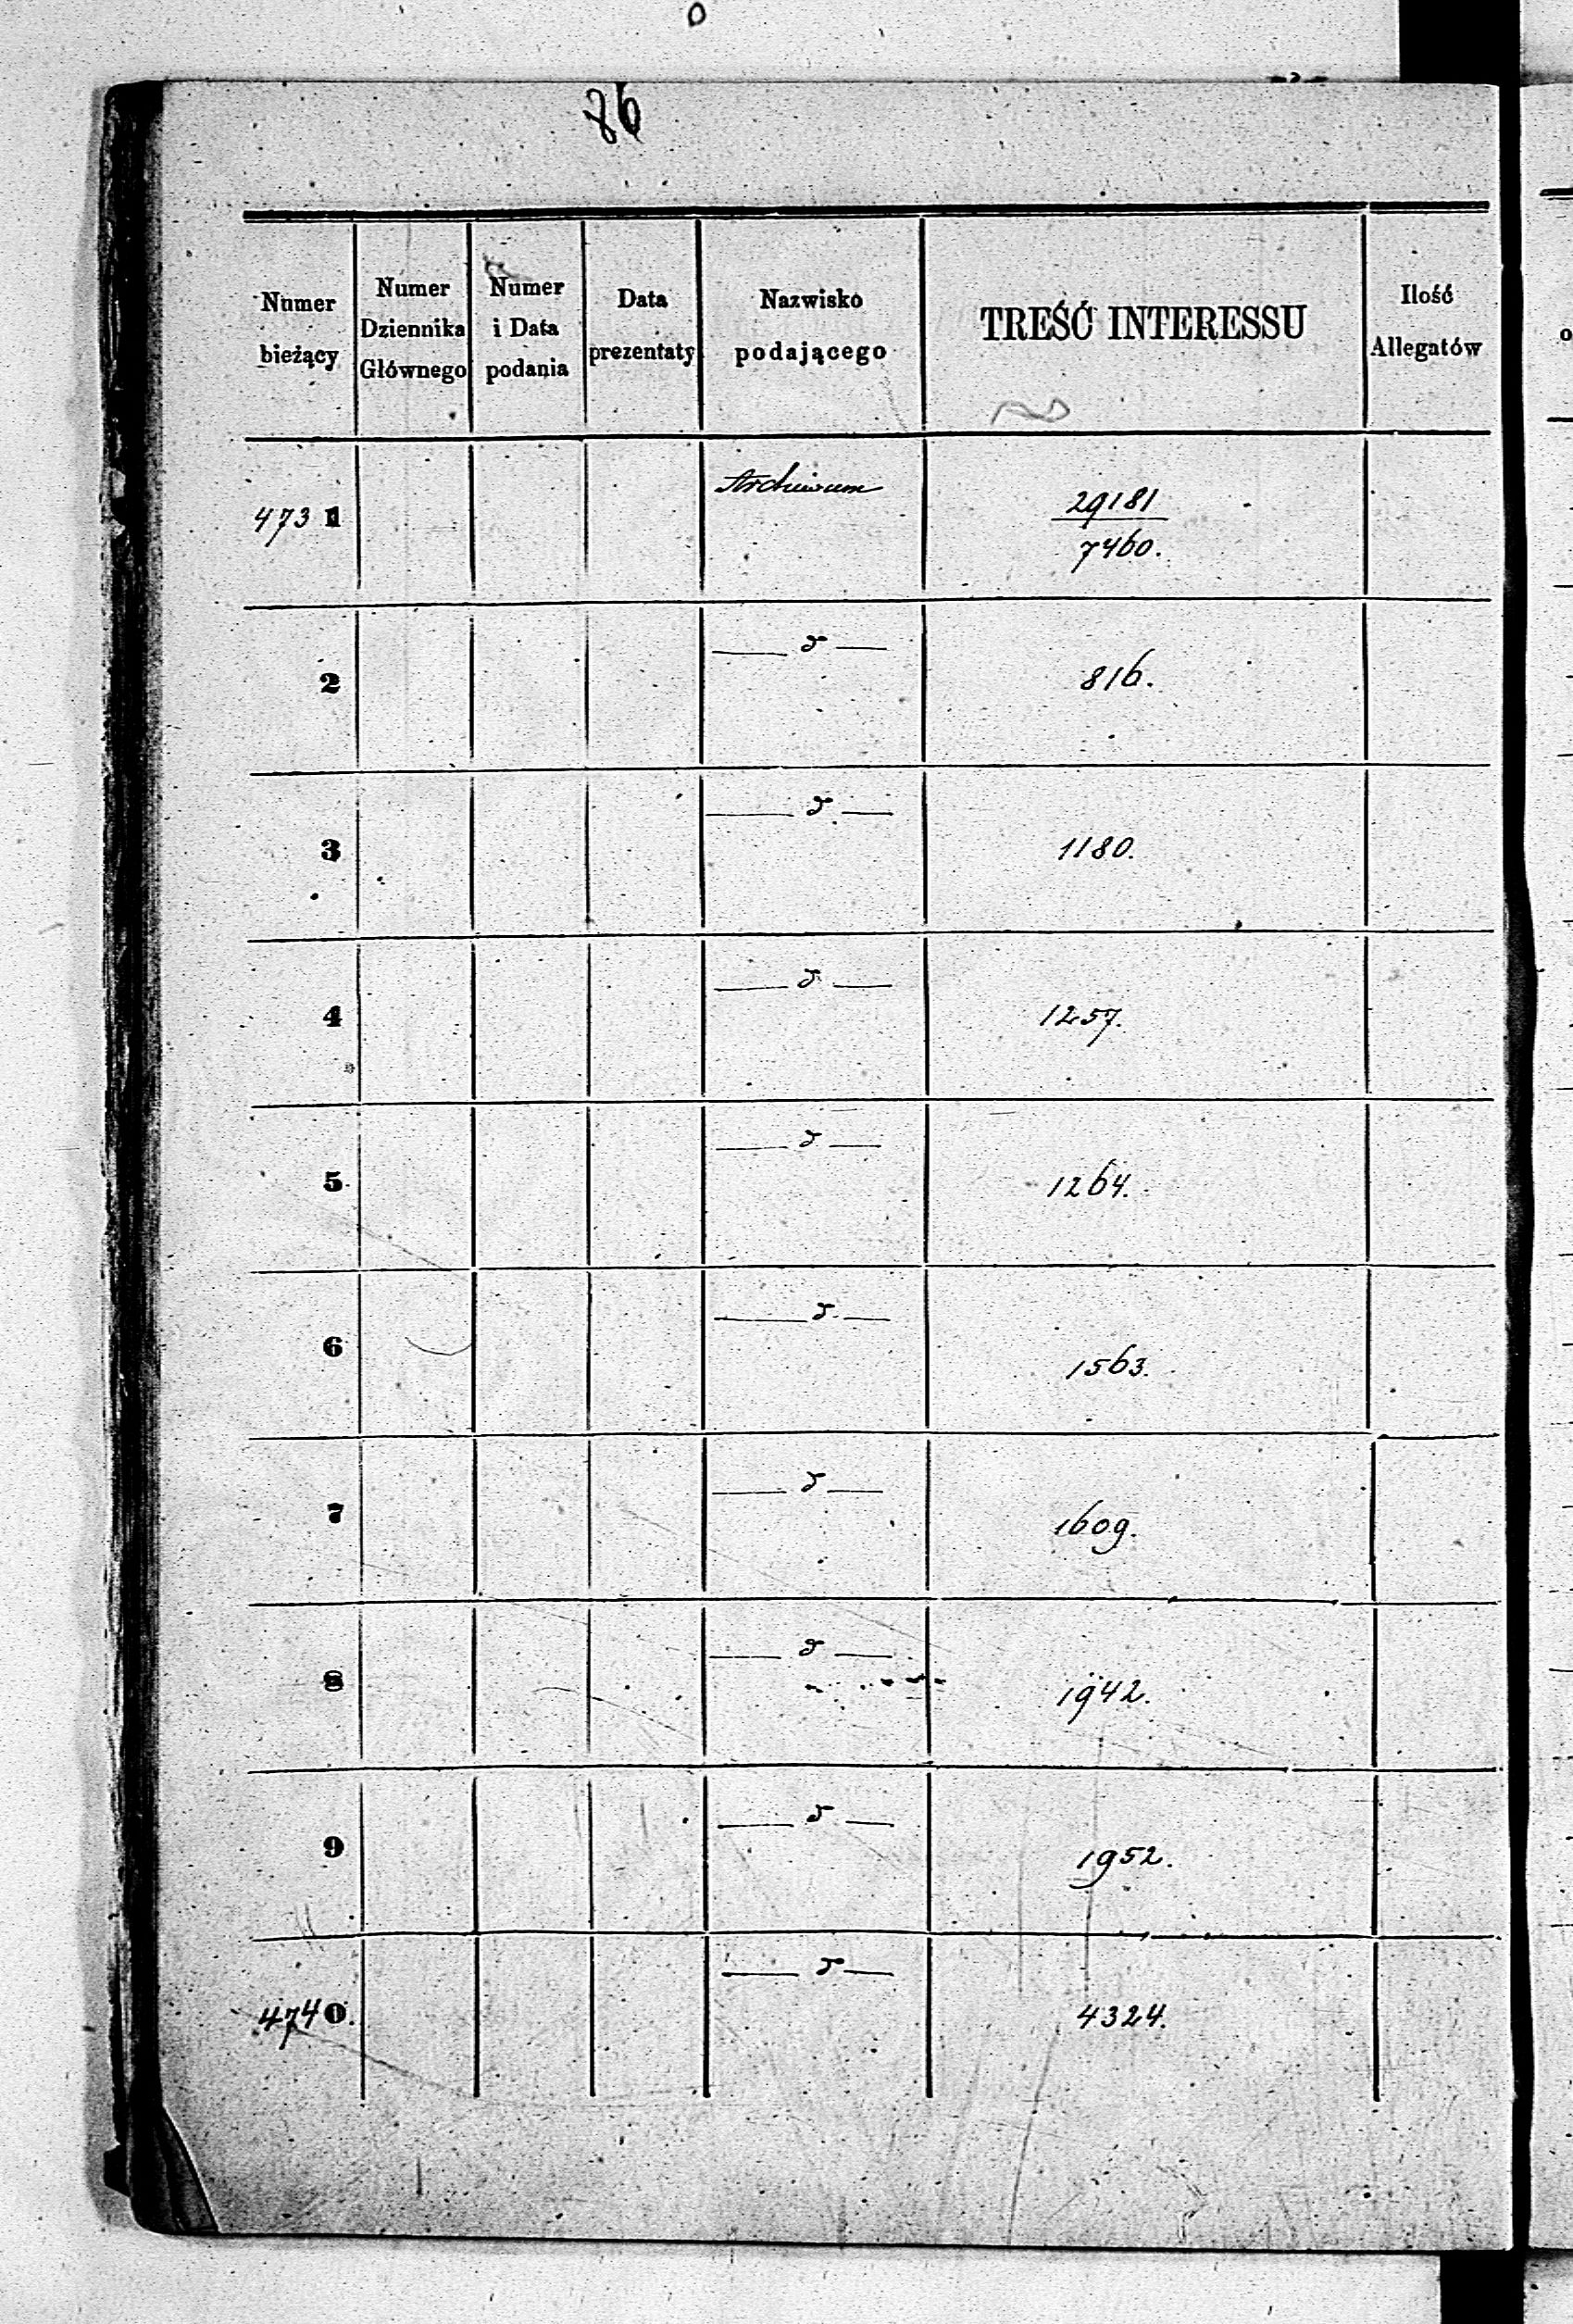 86
Numer bieżący
Numer Dziennika Głównego
Numer i Data podania
Data prezentaty
Nazwisko podającego
TREŚĆ INTERESSU
Ilość Allegatów
4731 Archiwum 29181
7460.
2 — d — 816.
3 — d — 1180.
4 — d — 1257.
5 — d — 1264.
6 — d — 1563.
7 — d — 1609.
8 — d — 1942.
9 — d — 1952.
4740. — d — 4324.